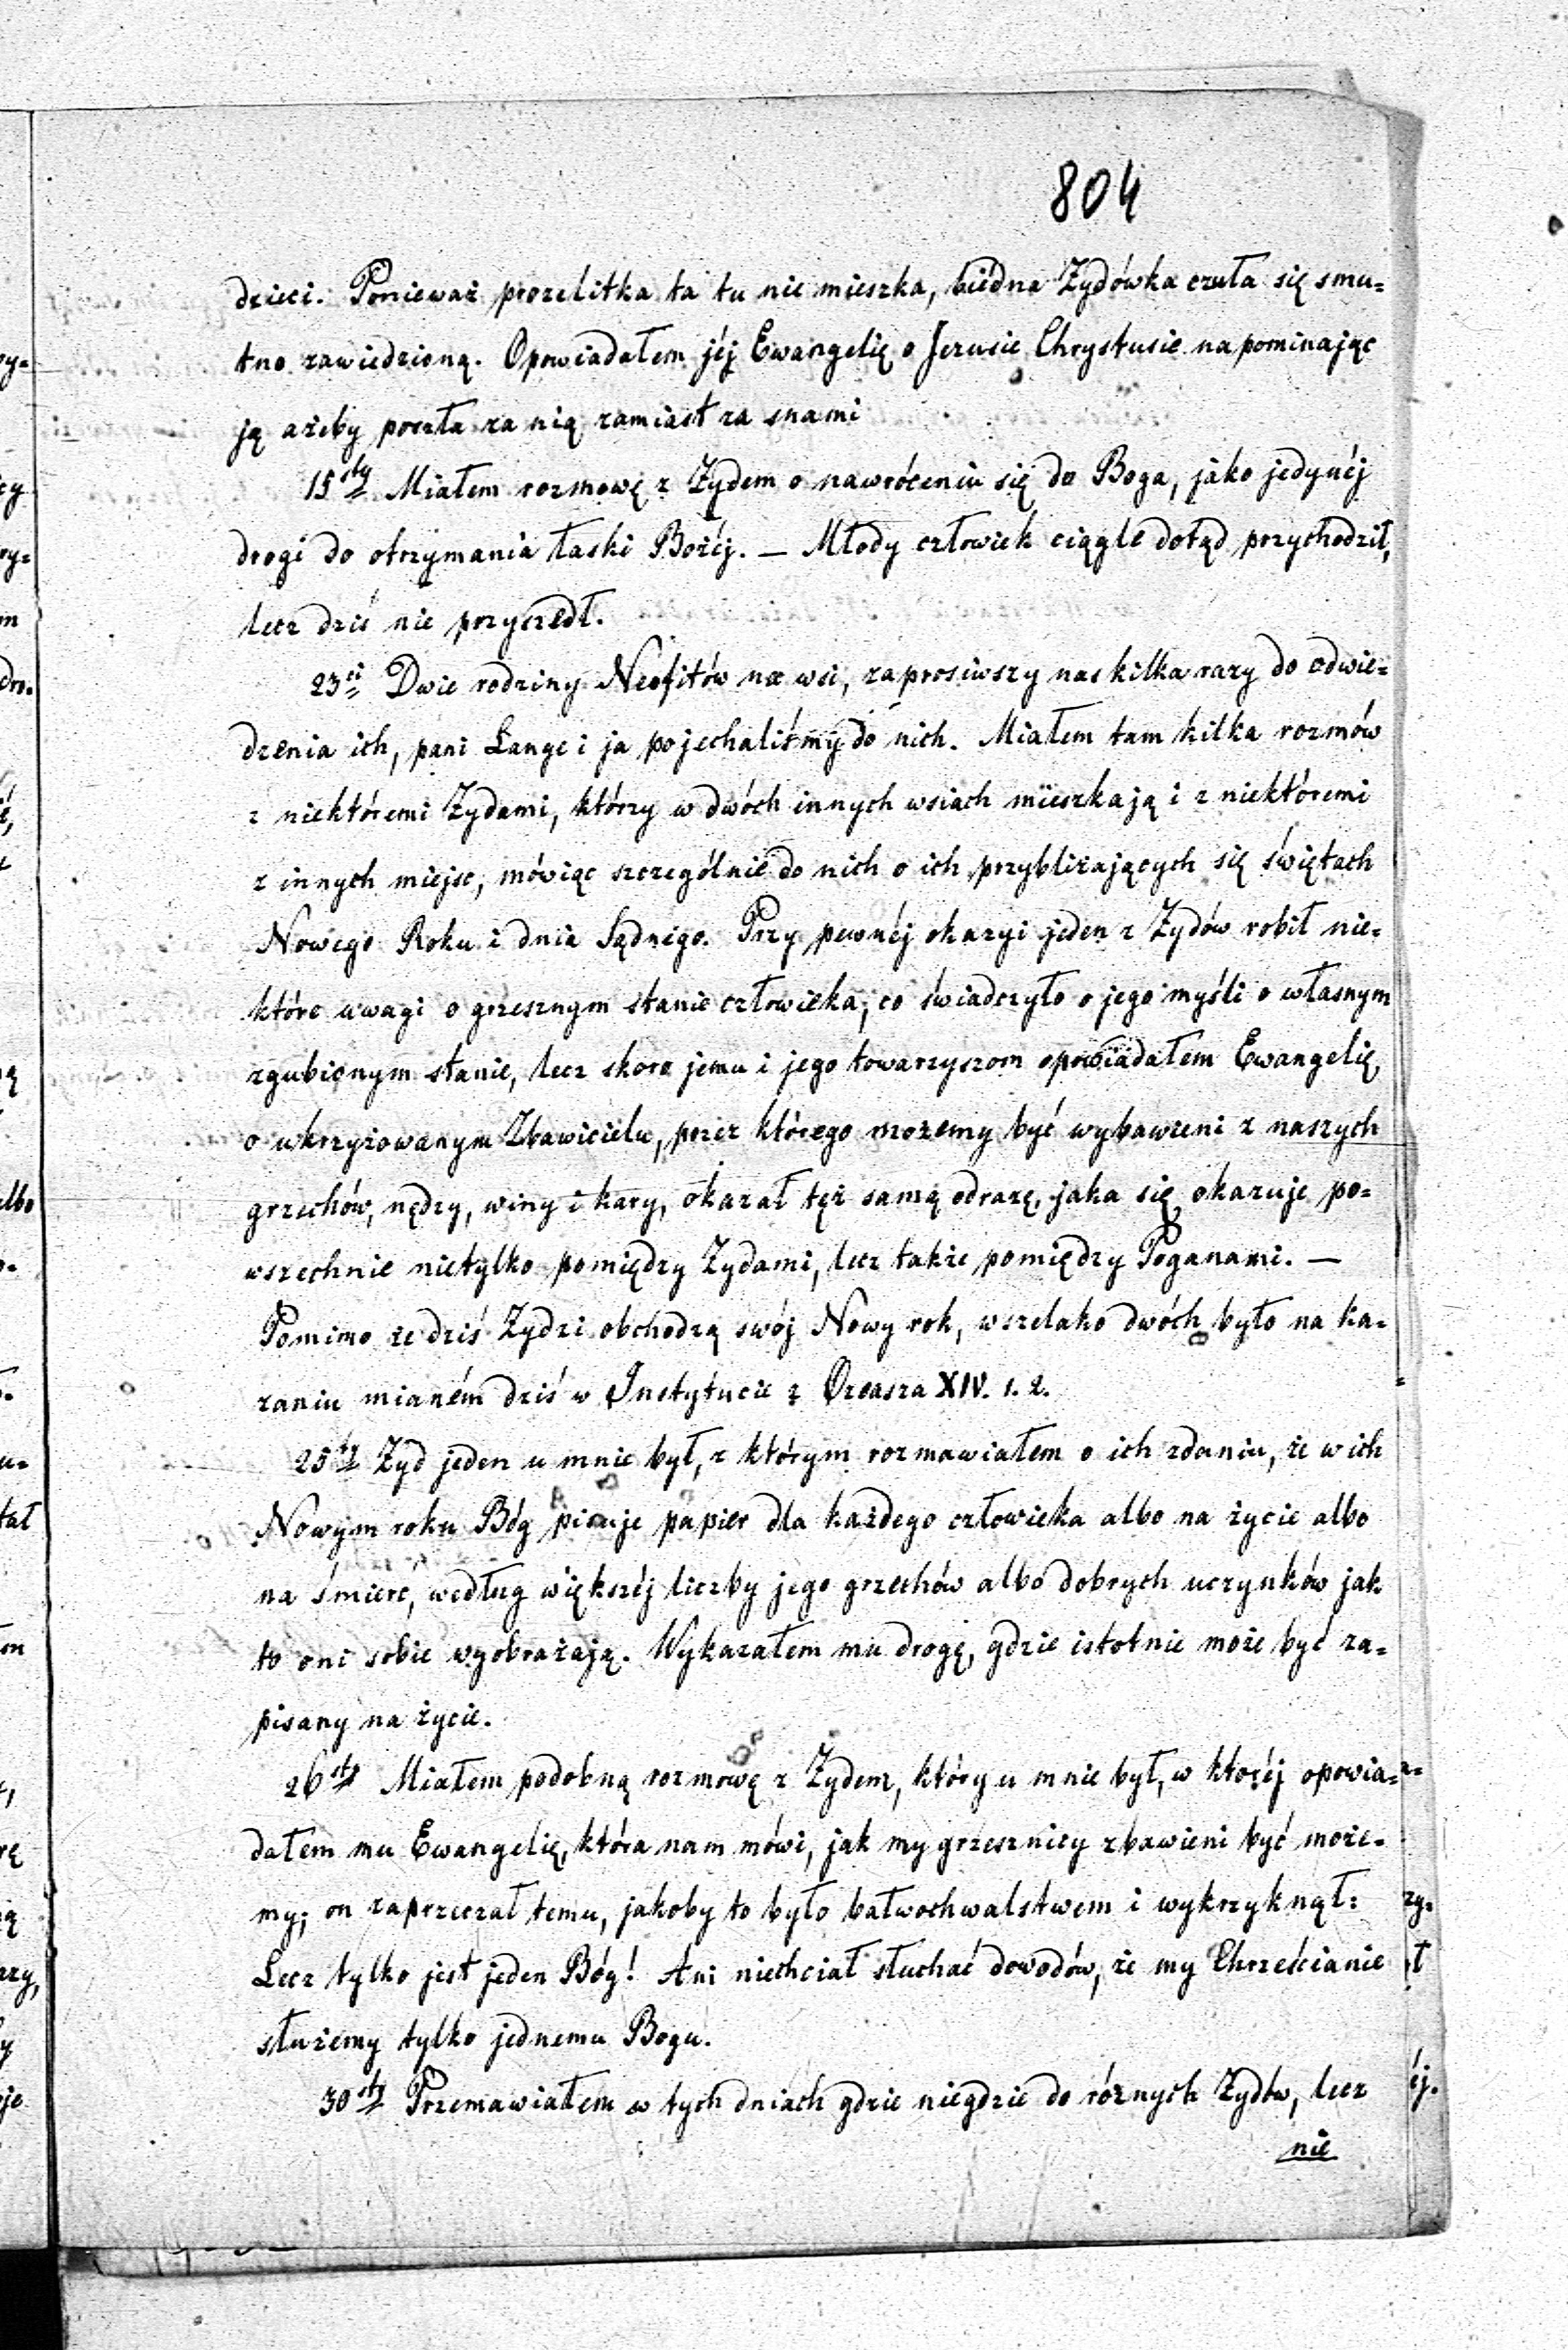 804
dzieci. Ponieważ prozelitka ta tu nie mieszka, biédna Żydówka czuła się smu=
tno zawiedzioną. Opowiadałem jéj Ewangelię o Jezusie Chrystusie napominając
ją ażeby poszła za nią zamiast za snami
15sty Miałem rozmowę z Żydem o nawróceniu się do Boga, jako jedynéj
drogi do otrzymania łaski Bożéj. — Młody człowiek ciągle dotąd przychodził,
lecz dziś nie przyszedł.
23ci Dwie rodziny Neofitów na wsi, zaprosiwszy nas kilka razy do odwie=
dzenia ich, pani Lange i ja pojechaliśmy do nich. Miałem tam kilka rozmów
z niektóremi Żydami, którzy w dwóch innych wsiach mieszkają i z niektóremi
z innych miejsc, mówiąc szczególnie do nich o ich przybliżających się świętach
Nowego Roku i dnia Sądnego. Przy pewnéj okazyi jeden z Żydów robił nie=
które uwagi o grzesznym stanie człowieka, co świadczyło o jego myśli o własnym
zgubionym stanie, lecz skoro jemu i jego towarzyszom opowiadałem Ewangelię
o ukrzyżowanym Zbawicielu, przez którego możemy być wybawieni z naszych
grzechów, nędzy, winy i kary, okazał tęż samą odrazę, jaka się okazuje po=
wszechnie nietylko pomiędzy Żydami, lecz także pomiędzy Poganami. —
Pomimo że dziś Żydzi obchodzą swój Nowy rok, wszelako dwóch było na ka=
zaniu mianém dziś w Instytucie z Ozeasza XIV. 1. 2.
25ty Żyd jeden u mnie był, z którym rozmawiałem o ich zdaniu, że w ich
Nowym roku Bóg pisuje papier dla każdego człowieka albo na życie albo
na śmierć, według większéj liczby jego grzechów albo dobrych uczynków jak
to oni sobie wyobrażają. Wykazałem mu drogę, gdzie istotnie może być za=
pisany na życie.
26sty Miałem podobną rozmowę z Żydem, który u mnie był, w któréj opowia=
dałem mu Ewangelię, która nam mówi, jak my grzesznicy zbawieni być może=
my; on zaprzeczał temu, jakoby to było bałwochwalstwem i wykrzyknął:
Lecz tylko jest jeden Bóg! Ani niechciał słuchać dowodów, że my Chrześcianie
służemy tylko jednemu Bogu.
30sty Przemawiałem w tych dniach gdzie niegdzie do różnych Żydów, lecz
nie